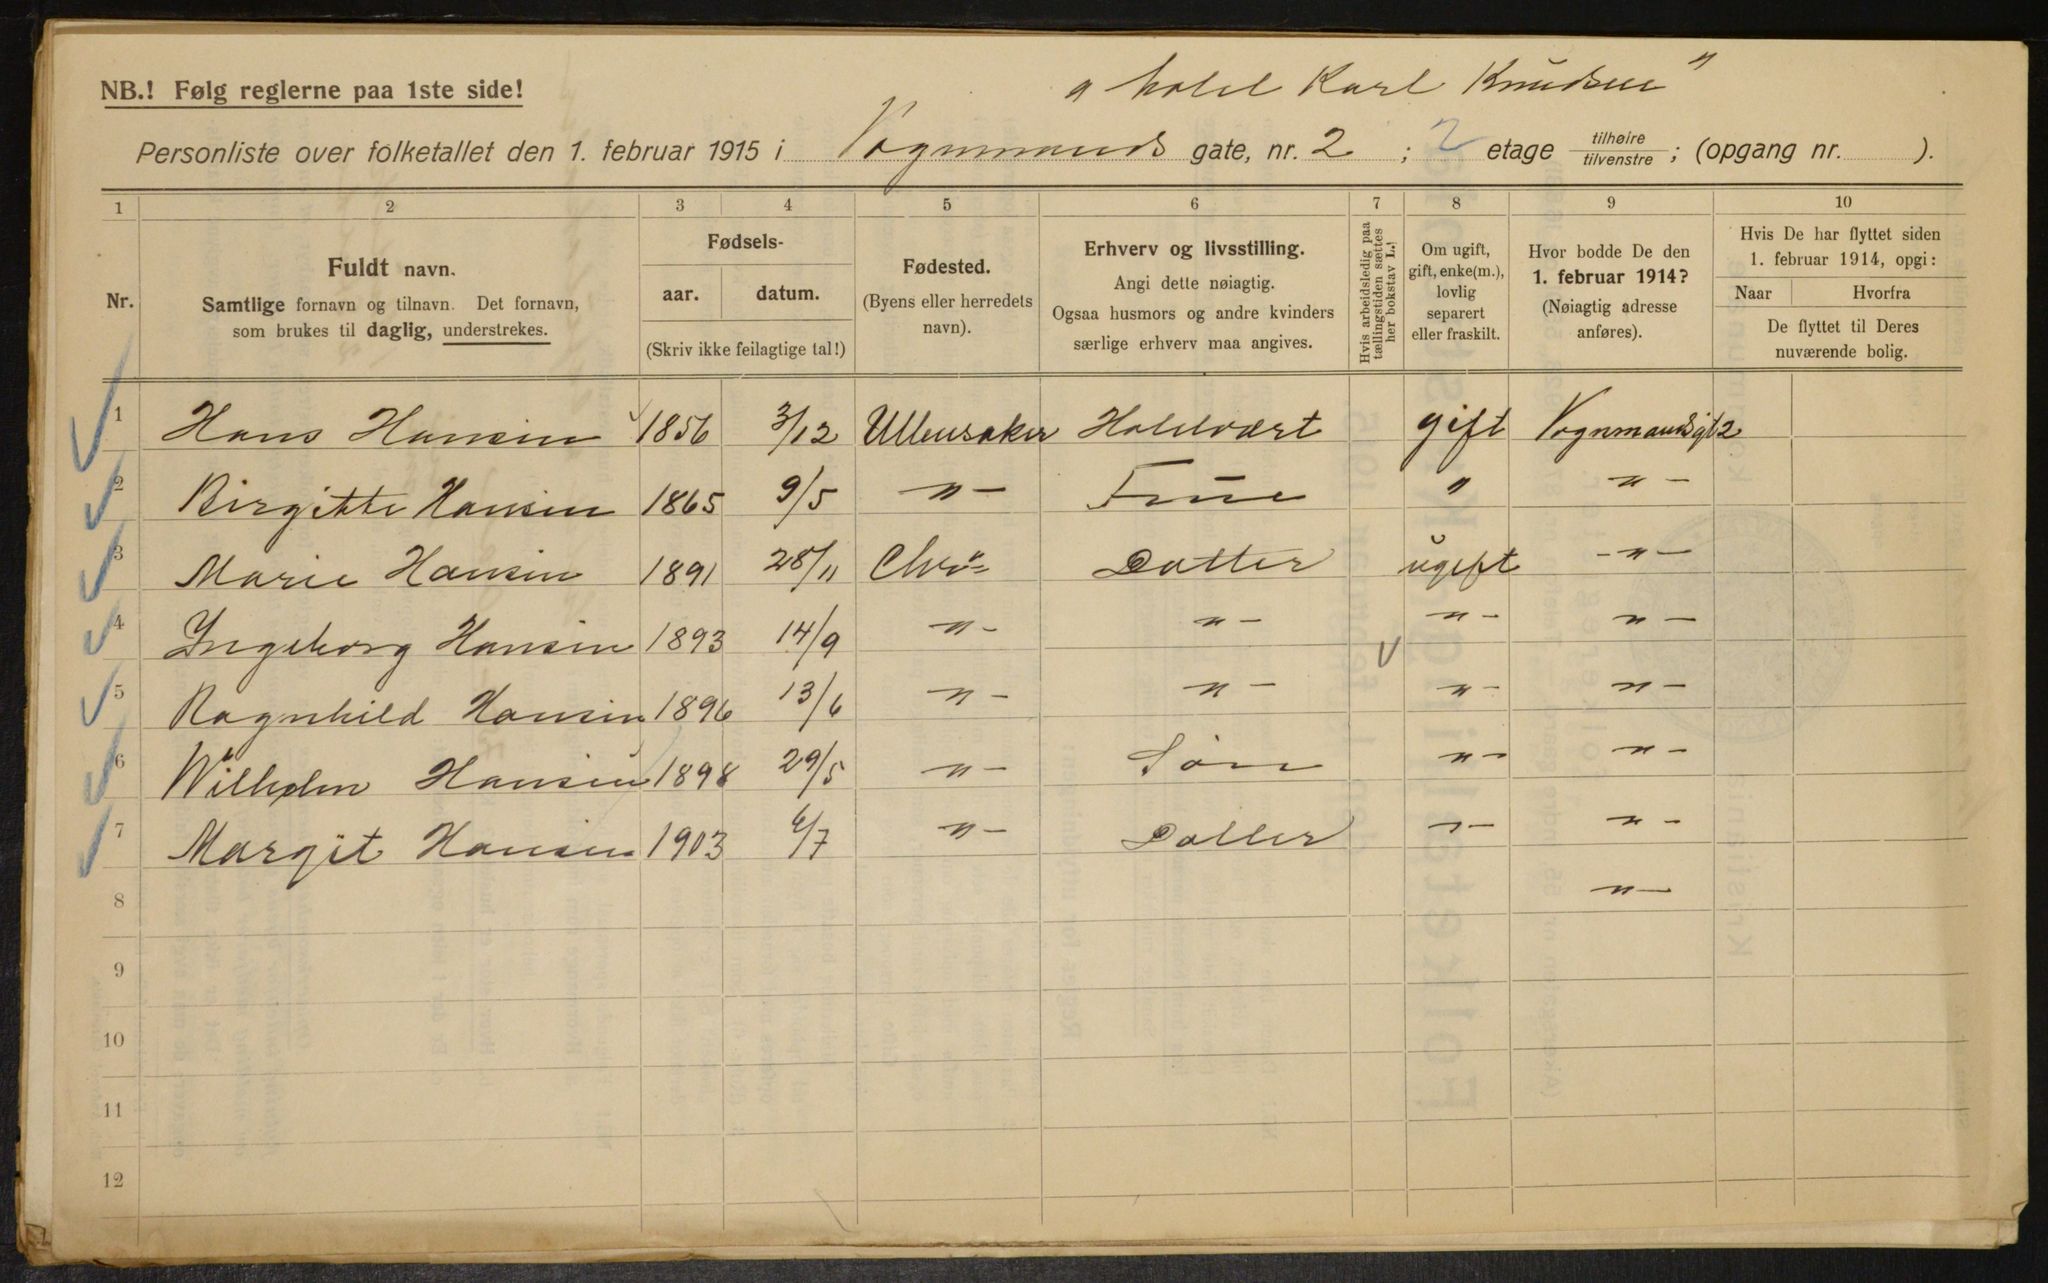 NB.! Følg reglerne paa 1ste side!
" Hotel Karl Knudsen "
Personliste over folketallet den 1. februar 1915 i Vognmands gate, nr. 2 ; 2 etage tilhøire / tilvenstre ; (opgang nr. ).
1 2 3 4 5 6 7 8 9 10
Nr.
Fuldt navn.
Samtlige fornavn og tilnavn. Det fornavn,
som brukes til daglig, understrekes.
Fødsels-
aar. datum.
(Skriv ikke feilagtige tal!)
Fødested.
(Byens eller herredets
navn).
Erhverv og livsstilling.
Angi dette nøiagtig.
Ogsaa husmors og andre kvinders
særlige erhverv maa angives.
Hvis arbeidsledig paa
tællingstiden sættes
her bokstav L.!
Om ugift,
gift, enke(m.),
lovlig
separert
eller fraskilt.
Hvor bodde De den
1. februar 1914?
(Nøiagtig adresse
anføres).
Hvis De har flyttet siden
1. februar 1914, opgi:
Naar Hvorfra
De flyttet til Deres
nuværende bolig.
1 Hans Hansen 1856 3/12 Ullensaker Hotelvært gift Vognmandsgt 2
2 Birgitte Hansen 1865 9/5 " - Frue " " -
3 Marie Hansen 1891 28/11 Chra Datter ugift - " -
4 Ingeborg Hansen 1893 14/9 " - " - " - " -
5 Ragnhild Hansen 1896 13/6 " - " - " - " -
6 Wilhelm Hansen 1898 29/5 " - Søn " - " -
7 Margit Hansen 1903 6/7 " - Datter " - " -
8 " -
9
10
11
12